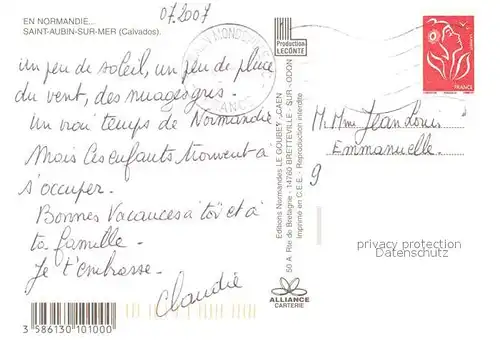 EN NORMANDIE...
SAINT-AUBIN-SUR-MER (Calvados).
07.2007
un peu de soleil, un peu de pluie
du vent, des nuages gris.
Un vrai temps de Normandie
Mais les enfants trouvent à
s'occuper.
Bonnes Vacances à toi et à
ta famille
Je t'embrasse.
Claudie
3 586130 101000
Production
LECONTE
Editions Normandes LE GOUBEY - CAEN
50 A, Rte de Bretagne - 14760 BRETTEVILLE - SUR - ODON
Imprimé en C.E.E. - Reproduction interdite
ALLIANCE
CARTERIE
FRANCE
M. Mme Jean Louis
Emmanuelle
9
privacy protection
Datenschutz